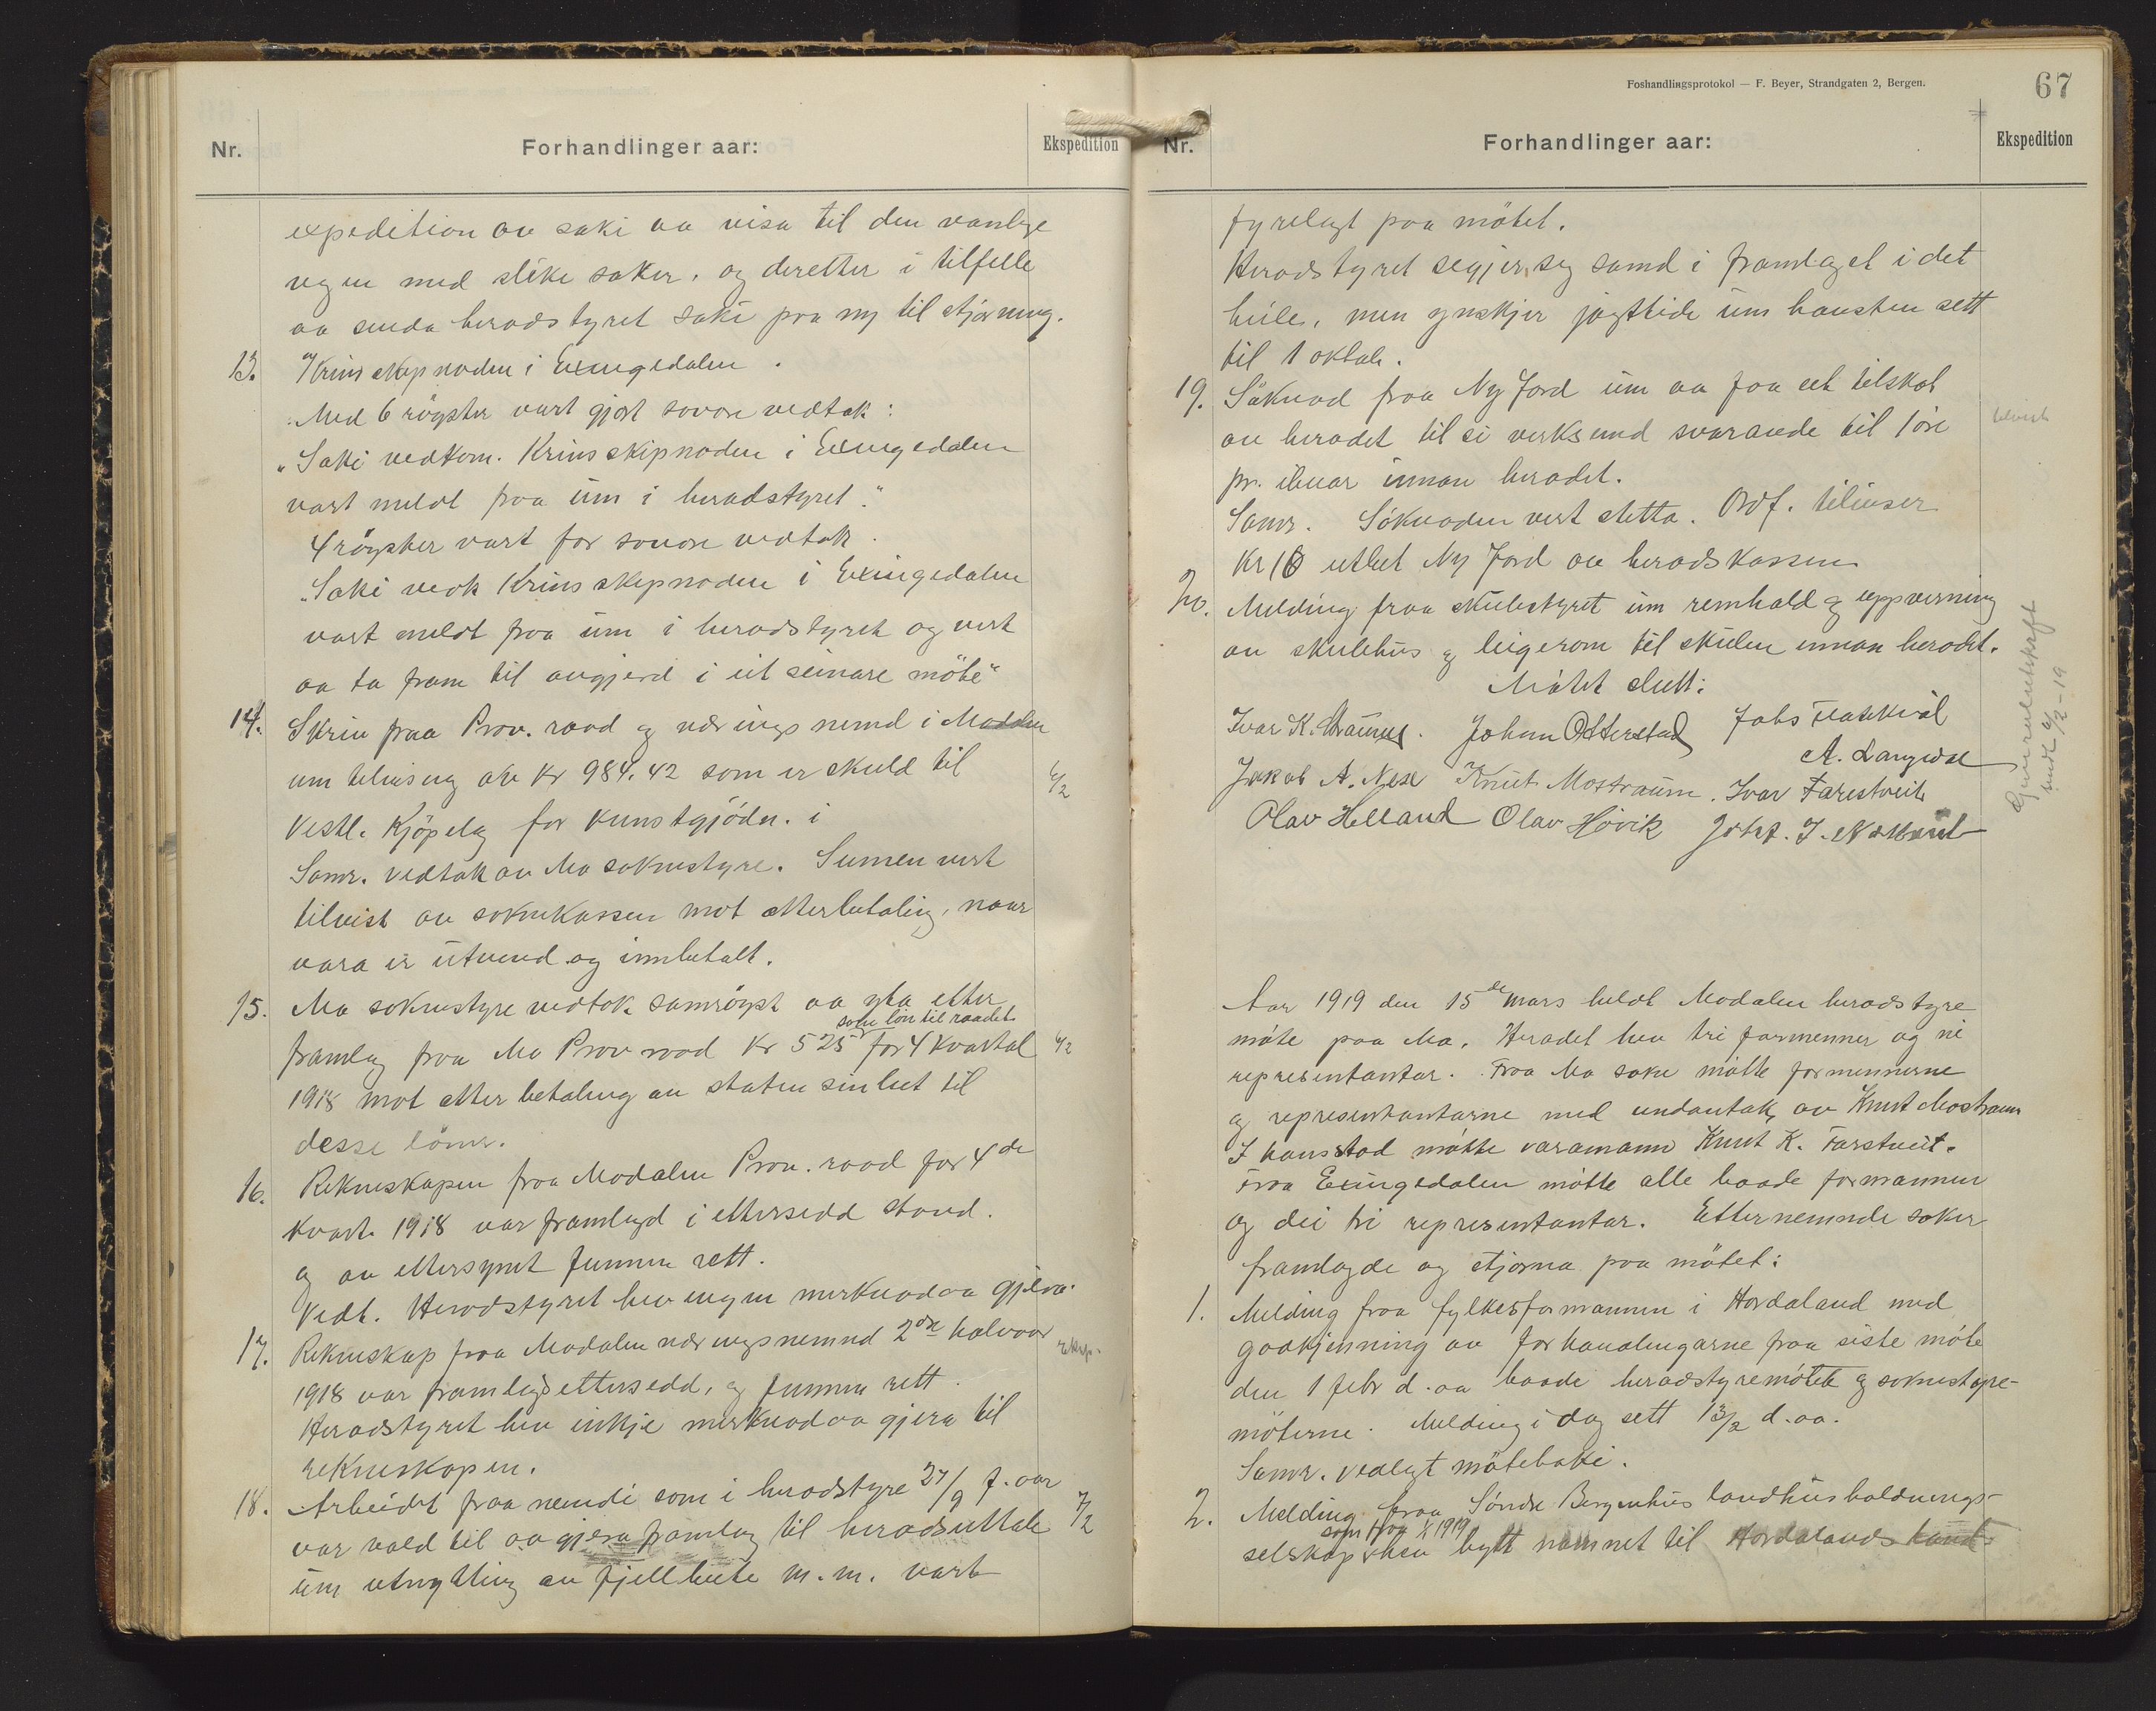 Nr.
Forhandlinger aar:
Ekspedition
expedition av saki aa visa til den vanlege
vegen med slike saker, og deretter i tilfelle
aa senda heradstyret saki paa ny til stjorning.
13. Krinsskipnaden i Exingedalen.
Med 6 röyster vart gjort sovore vedtak:
"Saki vedkom. Krinsskipnaden i Exingedalen
vart meldt fraa um i heradstyret."
4 röyster vart for sovore vedtak.
"Saki vedk Krinsskipnaden i Exingedalen
vart meldt fraa um i heradstyret og vert
aa ta fram til avgjerd i eit seinare möte"
14. Skriv fraa Prov. raad og næringsnemnd i Modalen
um tilvising av Kr 984.42 som er skuld til
Vestl. Kjöpelag for kunstgjödn. i
Samr. vedtak av Mo soknestyre. Sumen vert
tilvist av soknekassen mot atterbetaling, naar
vara er utvend og innbetalt.
15. Mo soknestyre vedtok samröyst aa yta etter
som lön til raadet
framlag fraa Mo Prov raad Kr 525 for 4 kvartal
1918 mot atterbetaling av staten sin lut til
desse löner.
16. Rekneskapen fraa Modalen Prov. raad for 4de
kvart. 1918 var framlagd i ettersedd stand.
og av ettersynet funnen rett.
Vedt. Heradstyret hev ingen merknad aa gjera.
17. Rekneskap fraa Modalen næringsnemnd 2dre halvaar
1918 var framlagd ettersedd, og funnen rett.
Heradstyret hev inkje merknad aa gjera til
rekneskapen.
18. Arbeidet fraa nemndi som i heradstyre 27/9 f. aar
var vald til aa gjera framlag til heradsuttale
um utnytting av fjellbeite m.m. vart
4/2
4/2
eksp.
7/2
Foshandlingsprotokol — F. Beyer, Strandgaten 2, Bergen.
67
Nr.
Forhandlinger aar:
Ekspedition
fyrelagt paa mötet.
Heradstyret segjer seg samd i framlaget i det
heile, men ynskjer jagttide um hausten sett
til 1 oktob.
19. Söknad fraa Ny Jord um aa faa eit tilskot
av heradet til si verksemd svarande til 1 öre
pr. ibuar innan heradet.
Samr. Söknaden vert stetta. Ordf. tilviser
Kr 10 utbet Ny Jord av heradskassen
20. Melding fraa skulestyret um reinhald og uppvarming
av skulehus og leigerom til skulen innan heradet.
Mötet slutt:
Ivar K. Straume. Johan Otterstad
A. Langedal
Jakob A. Nese Knut Mostraum. Ivar Farestveit
Olav Helland Olav Hövik
Aar 1919 den 15de mars heldt Modalen heradstyre
möte paa Mo. Heradet hev tri formenner og ni
representantar. Fraa Mo sokn mötte formennerne
og representantarne med undantak av Knut Mostraum
I hans stad mötte varamann Knut K. Farstveit.
Fraa Exingedalen mötte alle baade formannen
og dei tri representantar. Etternemnde saker
framlagde og stjorna paa mötet:
1. Melding fraa fylkesformannen i Hordaland med
godkjenning av forhandlingarne fraa siste möte
den 1 febr d. aa baade heradstyremötet og soknestyre-
möterne. Melding i dag sett 13/2 d. aa.
Samr. vedlegt möteboki.
2. Melding fraa Söndre Bergenhus landhusholdnings-
som fraa 1/1 1919
selskap hev bytt namnet til Hordalands land-